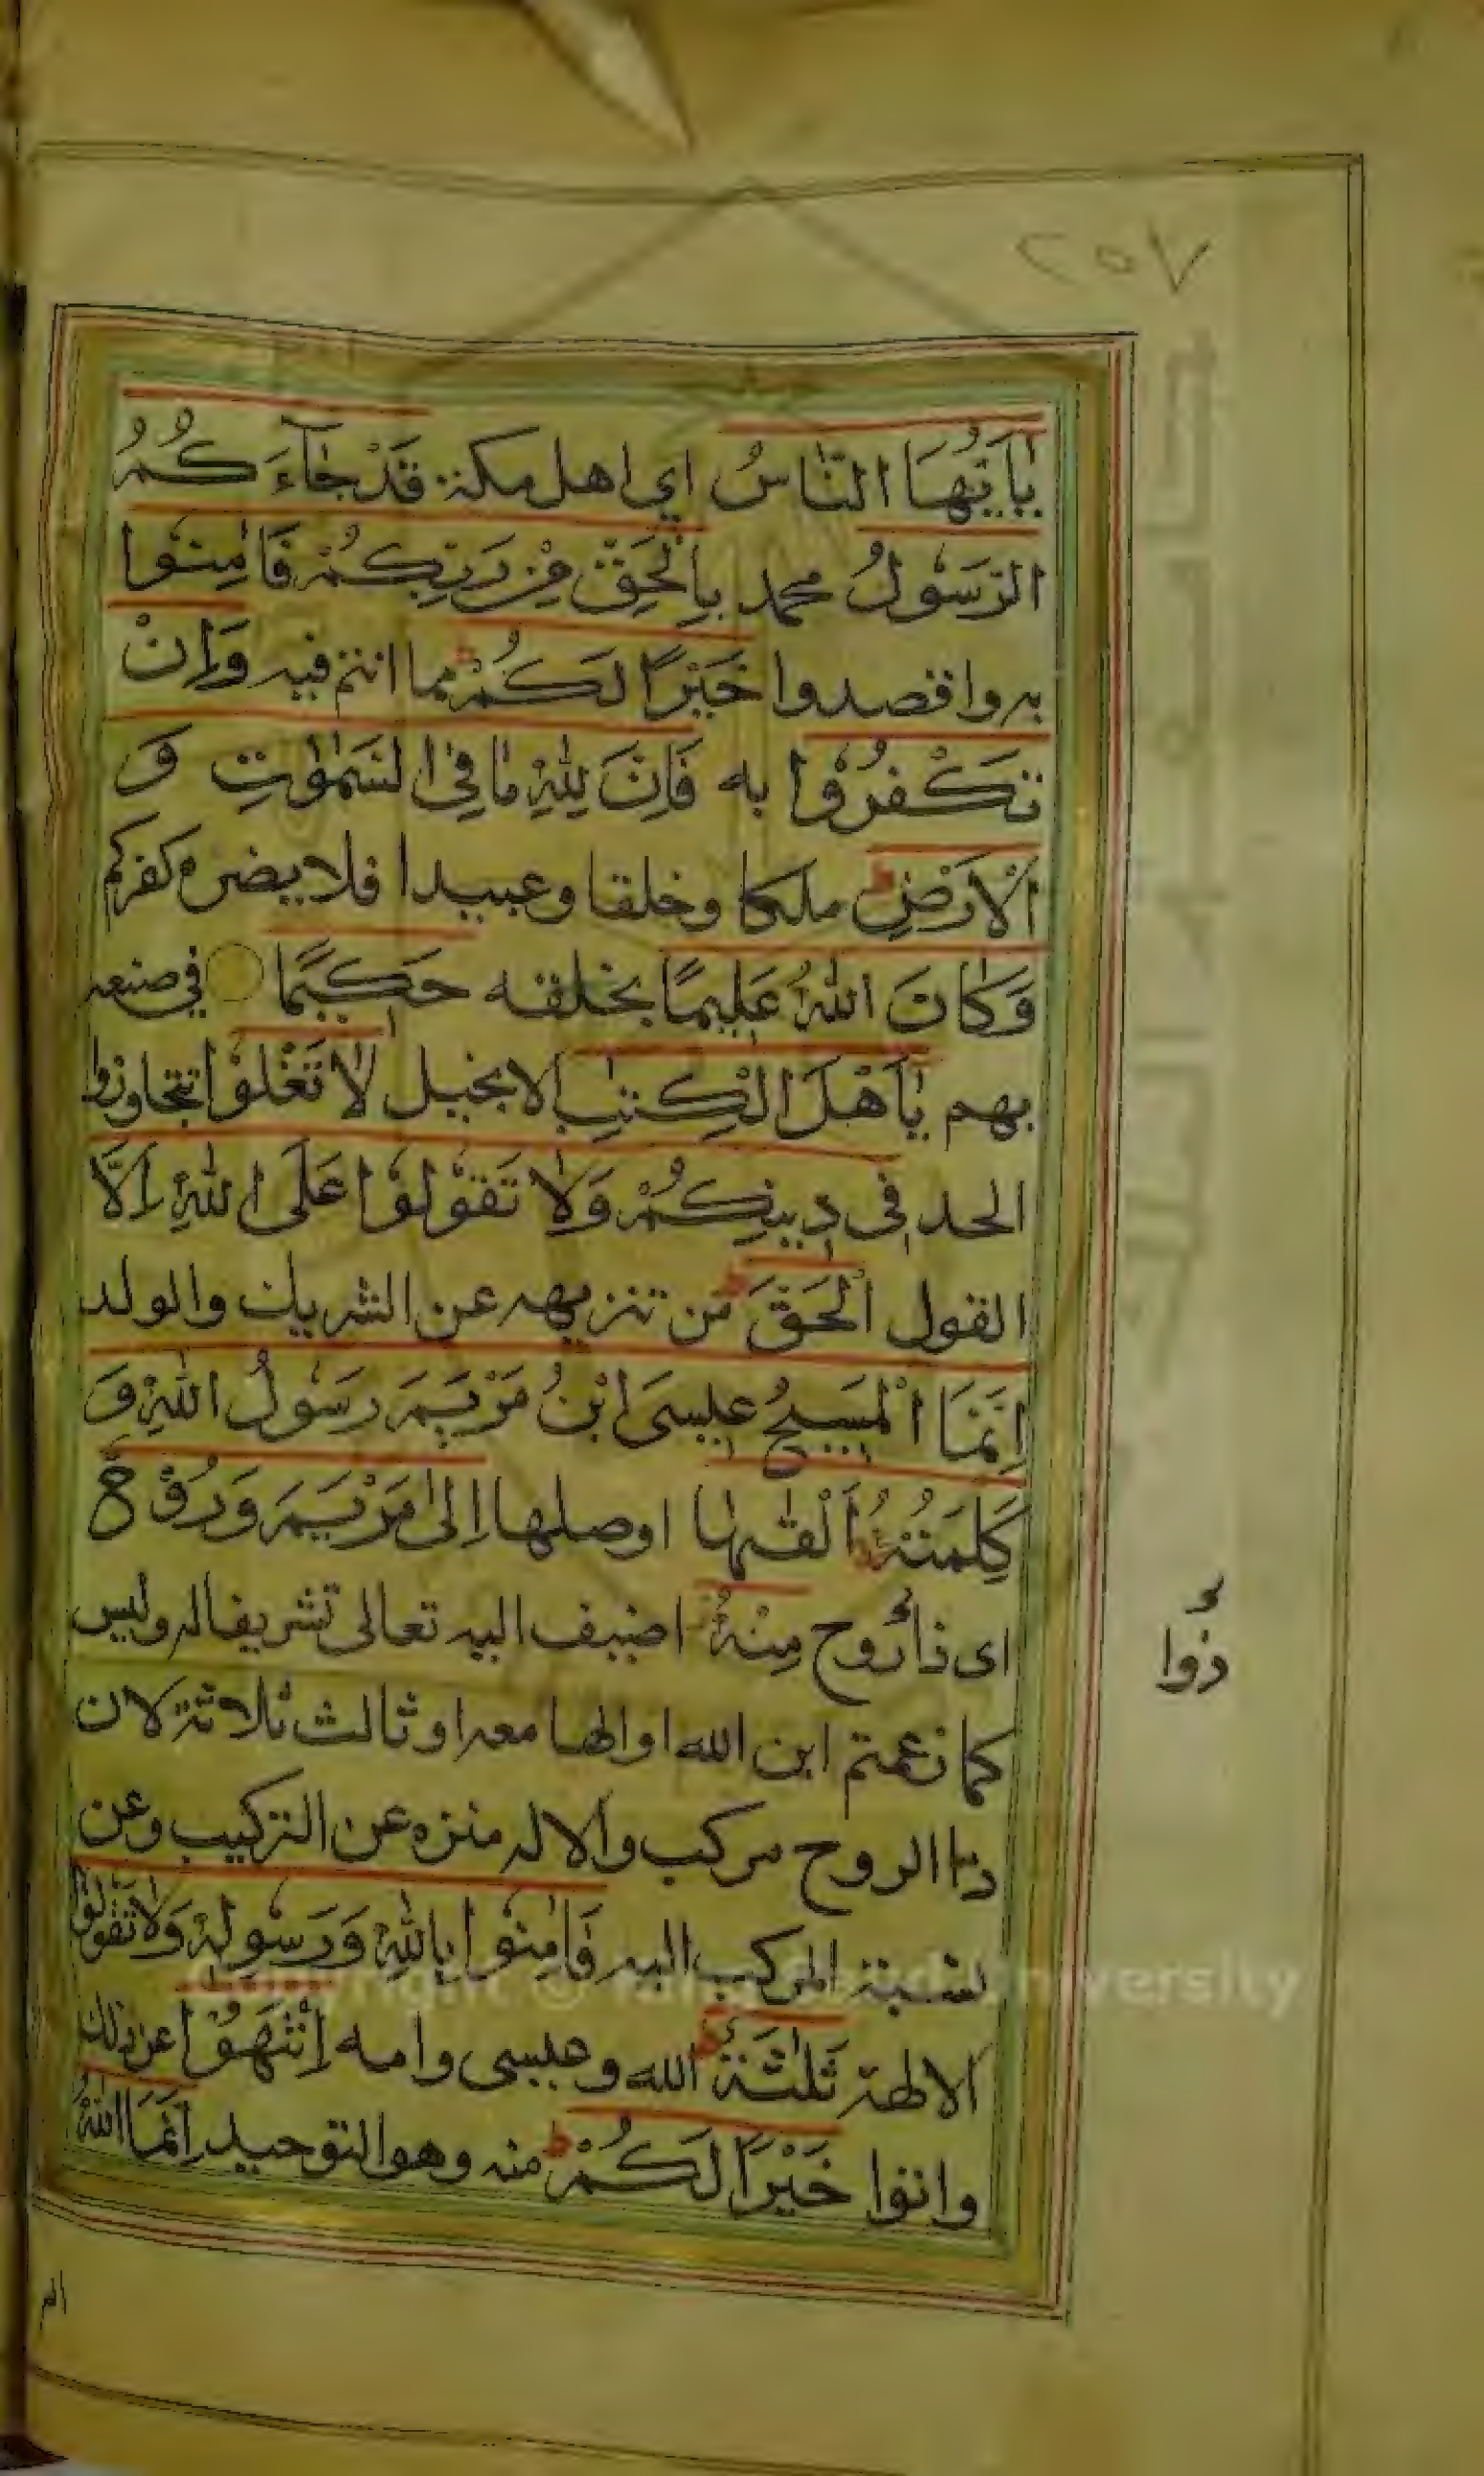 ٢٥٧
يٰٓاَيُّهَا النَّاسُ اي اهل مكة قَدْ جَآءَكُمُ
الرَّسُولُ محمد بِالْحَقِّ مِنْ رَبِّكُمْ فَاٰمِنُوا
به واقصدوا خَيْرًا لَكُمْ ط مما انتم فيه وَاِنْ
تَكْفُرُوا به فَاِنَّ لِلّٰهِ مَا فِي السَّمٰوٰتِ وَ
الْاَرْضِ ط ملكا وخلقا وعبيدا فلا يضره كفركم
وَكَانَ اللّٰهُ عَلِيمًا بخلقه حَكِيمًا في صنعه
بهم يٰٓاَهْلَ الْكِتٰبِ الانجيل لَا تَغْلُوْا تتجاوزوا
الحد فِي دِينِكُمْ وَلَا تَقُوْلُوْا عَلَى اللّٰهِ اِلَّا
القول الْحَقَّ ط من تنزيهه عن الشريك والولد
اِنَّمَا الْمَسِيحُ عِيسَى ابْنُ مَرْيَمَ رَسُولُ اللّٰهِ وَ
كَلِمَتُهُ اَلْقٰىهَا اوصلها اِلٰى مَرْيَمَ وَرُوْحٌ
اى ذا روح مِنْهُ اضيف اليه تعالى تشريفا له وليس
كما زعمتم ابن الله او الها معه او ثالث ثلاثة لان
ذا الروح مركب والاله منزه عن التركيب وعن
نسبة المركب اليه فَاٰمِنُوا بِاللّٰهِ وَرَسُولِهِ وَلَا تَقُوْلُوْا
الالهة ثَلٰثَةٌ ط الله وعيسى وامه اِنْتَهُوْا عن ذلك
واتوا خَيْرًا لَكُمْ ط منه وهو التوحيد اِنَّمَا اللّٰهُ
ذُوا